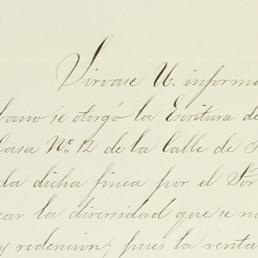 Sirvase U. informa
bano se otorgó la Escritura de
Casa Nº 12 de la Calle de
da dicha finca por el Sor
ar la diversidad que se n
y redencion; pues la renta